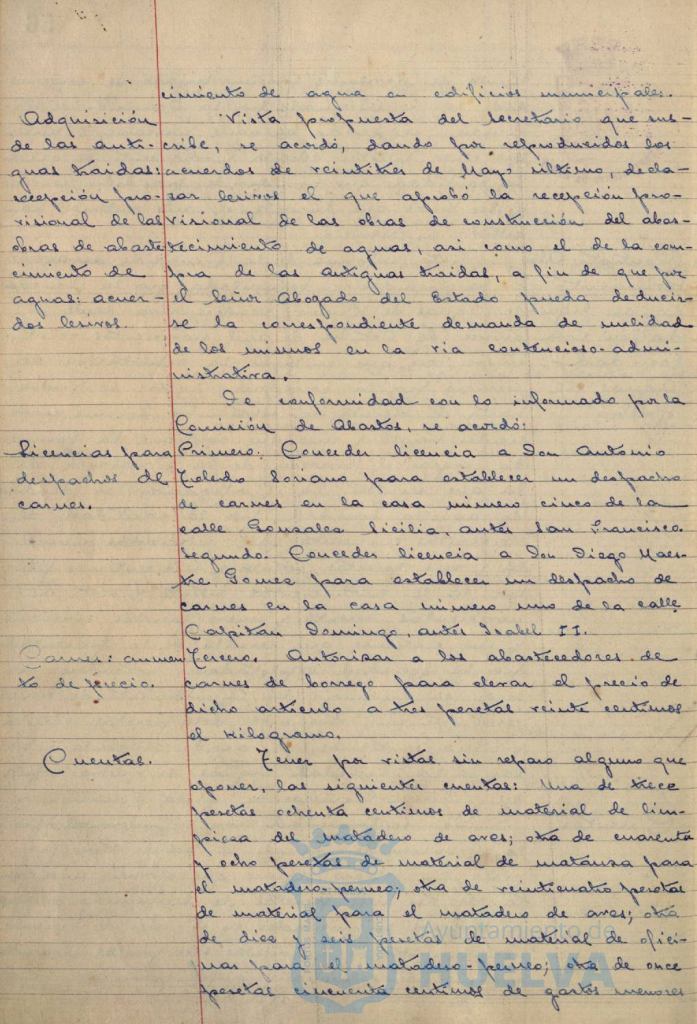 cimiento de agua en edificios municipales.
Adquisición
de las anti-
guas traidas:
recepción pro-
visional de las
obras de abaste
cimiento de
aguas: acuer-
dos lesivos.
Vista propuesta del Secretario que sus-
cribe, se acordó, dando por reproducidos los
acuerdos de veintitres de Mayo último, decla-
rar lesivos el que aprobó la recepción pro-
visional de las obras de construcción del abas-
tecimiento de aguas, asi como el de la com-
pra de las antiguas traidas, a fin de que por
el Señor Abogado del Estado pueda deducir-
se la correspondiente demanda de nulidad
de los mismos en la via contencioso-admi-
nistrativa.
De conformidad con lo informado por la
Comisión de Abastos, se acordó:
Licencias para
despachos de
carnes.
Primero: Conceder licencia a Don Antonio
Toledo Soriano para establecer un despacho
de carnes en la casa número cinco de la
calle Gonzalez Sicilia, antes San Francisco.
Segundo. Conceder licencia a Don Diego Maes-
tre Gomez para establecer un despacho de
carnes en la casa número uno de la calle
Capitan Domingo, antes Isabel II.
Carnes: aumen
to de precio.
Tercero. Autorizar a los abastecedores de
carnes de borrego para elevar el precio de
dicho articulo a tres pesetas veinte centimos
el kilogramo.
Cuentas.
Tener por vistas sin reparo alguno que
oponer, las siguientes cuentas: Una de trece
pesetas ochenta centimos de material de lim-
pieza del matadero de aves; otra de cuarenta
y ocho pesetas de material de matanza para
el matadero-perneo; otra de veinticuatro pesetas
de material para el matadero de aves; otra
de diez y seis pesetas de material de ofici-
nas para el matadero-perneo; otra de once
pesetas cincuenta centimos de gastos menores
Ayuntamiento de
HUELVA